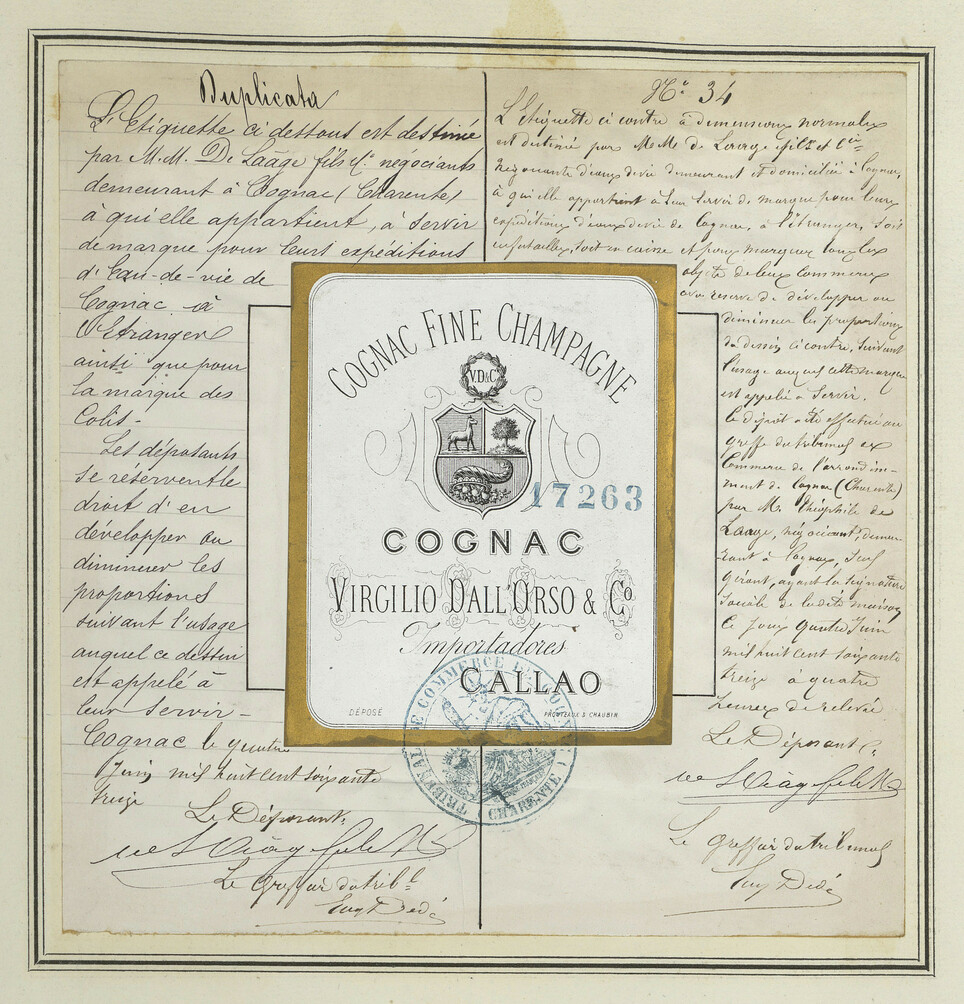 Duplicata
L'Etiquette ci dessous est destinée
par M.M. De Laâge fils & Cie négociants
demeurant à Cognac (Charente)
à qui elle appartient, à servir
de marque pour leurs expéditions
d'Eau-de-vie de
Cognac à
l'Etranger
ainsi que pour
la marque des
Colis -
Les déposants
se réservent le
droit d'en
développer ou
diminuer les
proportions
suivant l'usage
auquel ce dessin
est appelé à
leur servir -
Cognac le quatre
Juin mil huit cent soixante
treize
Le Déposant.
Le Greffier du tribl
Eug Dedé
COGNAC FINE CHAMPAGNE
V.D&Co
17263
COGNAC
VIRGILIO DALL'ORSO & Co
Importadores
CALLAO
DÉPOSÉ
PROUTEAUX & CHAUBIN
TRIBUNAL DE COMMERCE DE COGNAC
(CHARENTE)
No 34
L'Etiquette ci contre à dimensions normales
est destiné par MeMs de Laage fils et Cie
Négociants d'eaux de vie demeurant et domiciliés à Cognac,
à qui elle appartient à leur servir de marque pour leurs
expéditions d'eaux de vie de Cognac, à l'étranger, soit
en futailles, soit en caisse et pour marquer tous les
objets de leur commerce
sous réserve de développer ou
diminuer les proportions
du dessin ci contre, suivant
l'usage auquel cette marque
est appelée à servir.
Le dépôt a été effectué au
greffe du tribunal de
Commerce de l'arrondisse-
ment de Cognac (Charente)
par M. Théophile de
Laage, négociant, demeu-
rant à Cognac, seul
gérant, ayant la signature
sociale de ladite maison
Ce jour quatre Juin
mil huit cent soixante
treize à quatre
heures de relevée
Le Déposant.
Le Greffier du tribunal
Eug Dedé